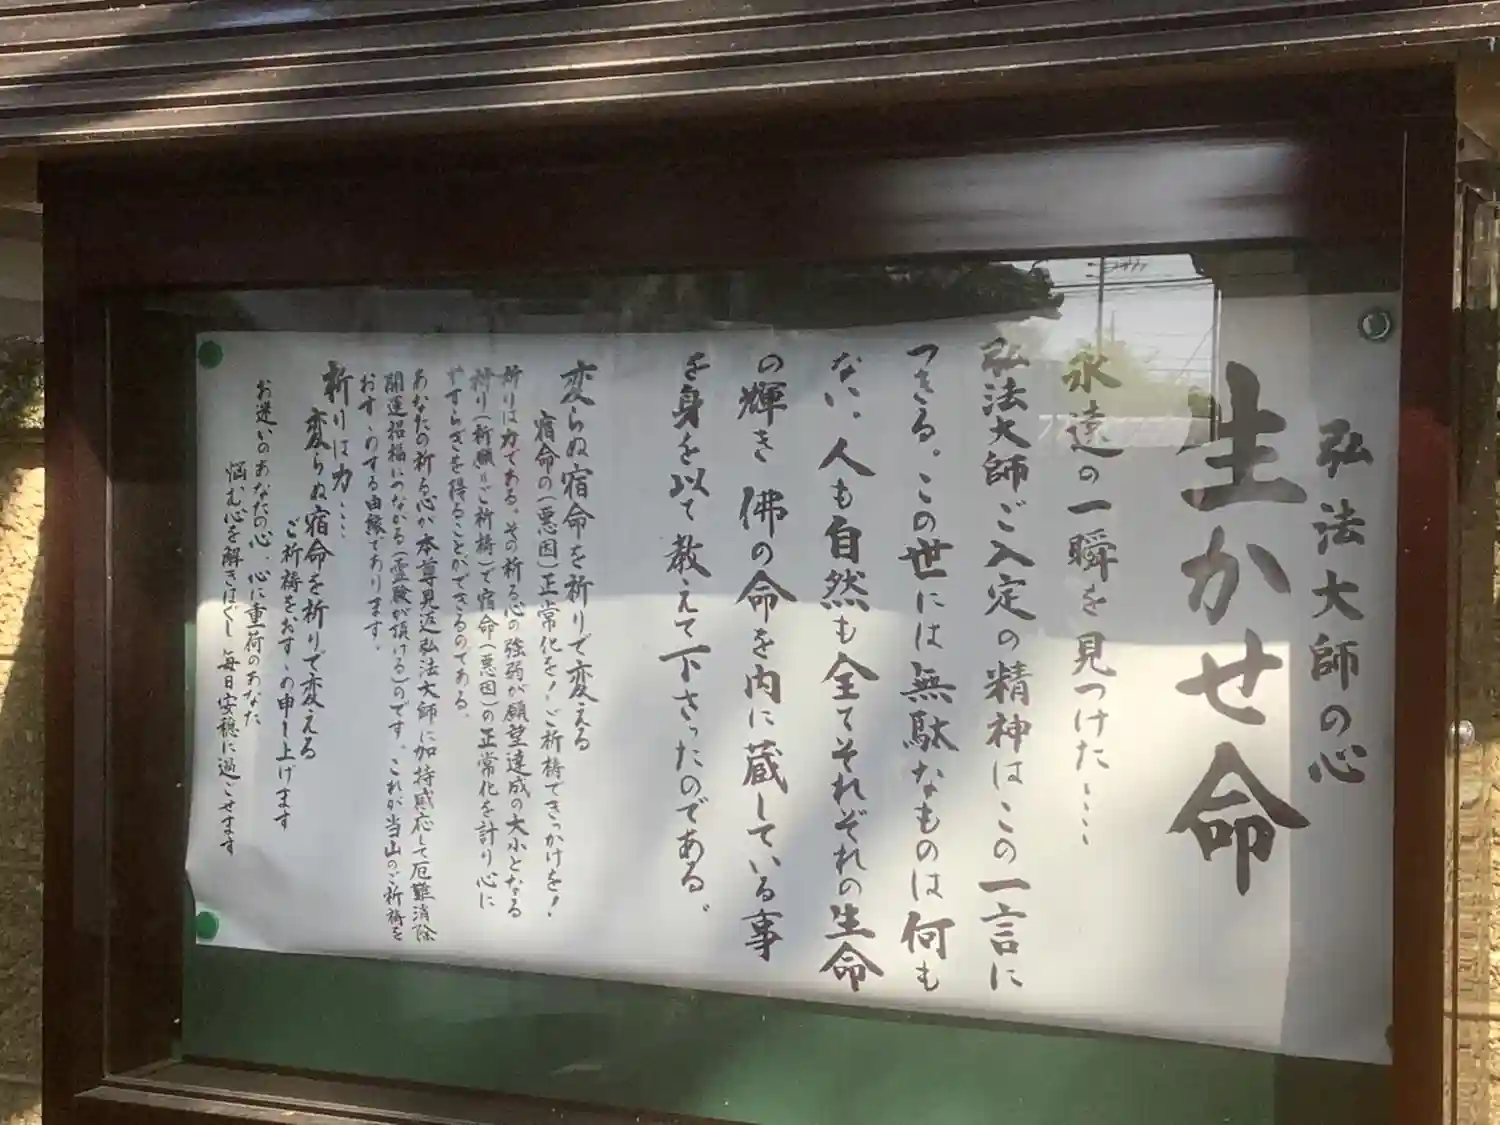 弘法大師の心
生かせ命
永遠の一瞬を見つけた‥‥
弘法大師ご入定の精神はこの一言に
つきる。この世には無駄なものは何も
ない、人も自然も全てそれぞれの生命
の輝き 佛の命を内に蔵している事
を身を以て教えて下さったのである。
変らぬ宿命を祈りで変える
宿命の(悪因)正常化を!ご祈祷できっかけを!
祈りは力である。その祈る心の強弱が願望達成の大小となる
祈り(祈願=ご祈祷)で宿命(悪因)の正常化を計り心に
やすらぎを得ることができるのである。
あなたの祈る心が本尊見返弘法大師に加持感応して厄難消除
開運招福につながる(霊験が頂ける)のです。これが当山のご祈祷を
おすゝめする由縁であります。
祈りは力‥‥
変らぬ宿命を祈りで変える
ご祈祷をおすゝめ申し上げます
お迷いのあなたの心、心に重荷のあなた
悩む心を解きほぐし毎日安穏に過ごせます